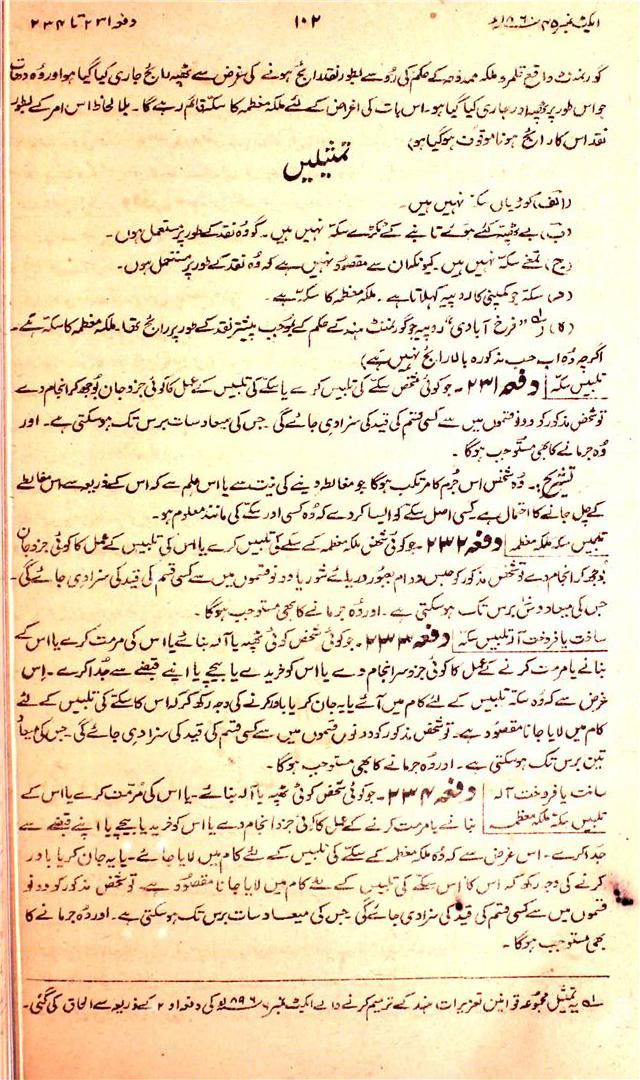 ایکٹ نمبر ۴۵ ۱۸۶۰ء ۱۰۲ دفعہ ۲۳۱ تا ۲۳۴
گورنمنٹ واقع قلمرو ملکہ ممدوحہ کے حکم کی رو سے بطور نقد رائج ہونے کی غرض سے ٹھپہ ہو کر جاری کیا گیا ہو اور وہ دھات
جو اس طور پر ٹھپہ اور جاری کیا گیا ہو۔ اس بات کی اغراض کے لئے ملکہ معظمہ کا سکہ قائم رہے گا۔ بلا لحاظ اس امر کے بطور
نقد اس کا رائج ہونا موقوف ہو گیا ہو)
تمثیلیں
(الف) کوڑیاں سکہ نہیں ہیں۔
(ب) بے ٹھپہ کئے ہوئے تانبے کے ٹکڑے سکہ نہیں ہیں۔ گو وہ نقد کے طور پر مستعمل ہوں۔
(ج) تمغے سکہ نہیں ہیں۔ کیونکہ ان سے مقصود نہیں ہے کہ وہ نقد کے طور پر مستعمل ہوں۔
(د) سکہ جو کمپنی کا روپیہ کہلاتا ہے۔ ملکہ معظمہ کا سکہ ہے۔
(ہ) لہ "فرخ آبادی" روپیہ جو گورنمنٹ ہند کے حکم کے بموجب پیشتر نقد کے طور پر رائج تھا۔ ملکہ معظمہ کا سکہ ہے۔
اگرچہ وہ اب حسب مذکورہ بالا رائج نہیں ہے)
تلبیس سکہ دفعہ ۲۳۱۔ جو کوئی شخص سکے کی تلبیس کرے یا سکے کی تلبیس کے عمل کا کوئی جزو جان بوجھ کر انجام دے
تو شخص مذکور کو دونوں قسموں میں سے کسی قسم کی قید کی سزا دی جائے گی جس کی میعاد سات برس تک ہو سکتی ہے۔ اور
وہ جرمانے کا بھی مستوجب ہوگا۔
تشریح:۔ وہ شخص اس جرم کا مرتکب ہوگا جو مغالطہ دینے کی نیت سے یا اس علم سے کہ اس کے ذریعہ سے اس مغالطے
کے چل جانے کا احتمال ہے کسی اصل سکے کو ایسا کر دے کہ وہ کسی اور سکے کی مانند معلوم ہو۔
تلبیس سکہ ملکہ معظمہ دفعہ ۲۳۲۔ جو کوئی شخص ملکہ معظمہ کے سکے کی تلبیس کرے یا اس کی تلبیس کے عمل کا کوئی جزو جان
بوجھ کر انجام دے تو شخص مذکور کو حبس دوام بعبور دریائے شور یا دونوں قسموں میں سے کسی قسم کی قید کی سزا دی جائے گی۔
جس کی میعاد دس برس تک ہو سکتی ہے۔ اور وہ جرمانے کا بھی مستوجب ہوگا۔
ساخت یا فروخت آلہ تلبیس سکہ دفعہ ۲۳۳۔ جو کوئی شخص کوئی ٹھپہ یا آلہ بنائے یا اس کی مرمت کرے یا اس کے
بنانے یا مرمت کرنے کے عمل کا کوئی جزو سرانجام دے یا اس کو خریدے یا بیچے یا اپنے قبضے سے جدا کرے۔ اس
غرض سے کہ وہ سکہ تلبیس کے لئے کام میں آئے یا یہ جان کر یا باور کرنے کی وجہ رکھ کر کہ اس کا سکے کی تلبیس کے لئے
کام میں لایا جانا مقصود ہے۔ تو شخص مذکور کو دونوں قسموں میں سے کسی قسم کی قید کی سزا دی جائے گی۔ جس کی میعاد
تین برس تک ہو سکتی ہے۔ اور وہ جرمانے کا بھی مستوجب ہوگا۔
ساخت یا فروخت آلہ دفعہ ۲۳۴۔ جو کوئی شخص کوئی ٹھپہ یا آلہ بنائے۔ یا اس کی مرمت کرے یا اس کے
تلبیس سکہ ملکہ معظمہ بنانے یا مرمت کرنے کے عمل کا کوئی جزو انجام دے یا اس کو خریدے یا بیچے یا اپنے قبضے سے
جدا کرے۔ اس غرض سے کہ وہ ملکہ معظمہ کے سکے کی تلبیس کے لئے کام میں لایا جائے۔ یا یہ جان کر یا باور
کرنے کی وجہ رکھ کہ اس کا اس سکے کی تلبیس کے لئے کام میں لایا جانا مقصود ہے۔ تو شخص مذکور کو دونوں
قسموں میں سے کسی قسم کی قید کی سزا دی جائے گی جس کی میعاد سات برس تک ہو سکتی ہے۔ اور وہ جرمانے کا
بھی مستوجب ہوگا۔
لہ یہ تمثیل مجموعہ قوانین تعزیرات ہند کے ترمیم کرنے والے ایکٹ نمبر ۶ ۱۸۹۶ء کی دفعہ ۱ و ۲ کے ذریعہ سے الحاق کی گئی۔